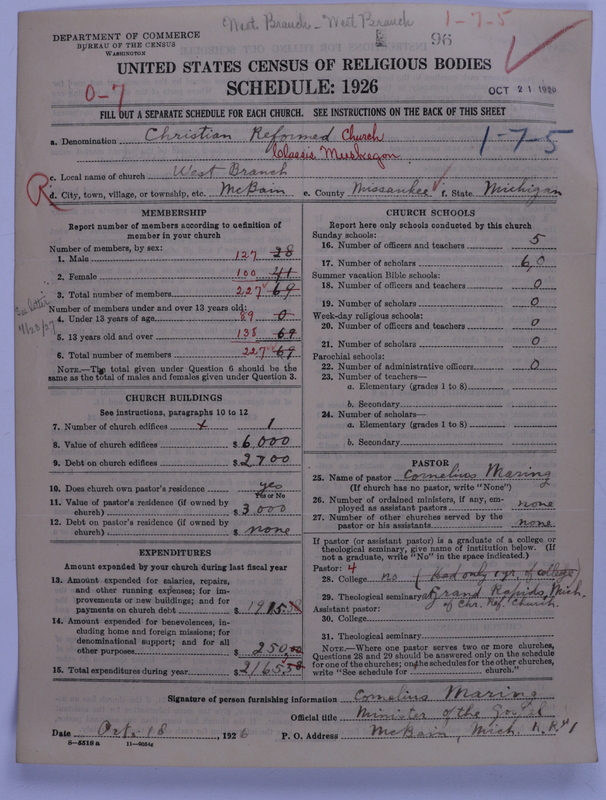 West Branch - West Branch
1-7-5
96
DEPARTMENT OF COMMERCE
BUREAU OF THE CENSUS
WASHINGTON
UNITED STATES CENSUS OF RELIGIOUS BODIES
SCHEDULE: 1926
OCT 21 1926
0-7
FILL OUT A SEPARATE SCHEDULE FOR EACH CHURCH. SEE INSTRUCTIONS ON THE BACK OF THIS SHEET
a. Denomination Christian Reformed Church
1-7-5
Classis Muskegon
c. Local name of church West Branch
R
d. City, town, village, or township, etc. McBain e. County Missaukee f. State Michigan
MEMBERSHIP
Report number of members according to definition of member in your church
Number of members, by sex:
1. Male 127 28
2. Female 100 41
3. Total number of members 227 69
Number of members under and over 13 years old:
See letter 4/23/27
4. Under 13 years of age 89 0
5. 13 years old and over 138 69
6. Total number of members 227 69
NOTE.—The total given under Question 6 should be the
same as the total of males and females given under Question 3.
CHURCH BUILDINGS
See instructions, paragraphs 10 to 12
7. Number of church edifices 1
8. Value of church edifices $ 6,000
9. Debt on church edifices $ 2700
10. Does church own pastor's residence yes
Yes or No
11. Value of pastor's residence (if owned by
church) $ 3,000
12. Debt on pastor's residence (if owned by
church) $ none
EXPENDITURES
Amount expended by your church during last fiscal year
13. Amount expended for salaries, repairs,
and other running expenses; for im-
provements or new buildings; and for
payments on church debt $ 1915.58
14. Amount expended for benevolences, in-
cluding home and foreign missions; for
denominational support; and for all
other purposes $ 250.00
15. Total expenditures during year $ 2165.58
CHURCH SCHOOLS
Report here only schools conducted by this church
Sunday schools:
16. Number of officers and teachers 5
17. Number of scholars 60
Summer vacation Bible schools:
18. Number of officers and teachers 0
19. Number of scholars 0
Week-day religious schools:
20. Number of officers and teachers 0
21. Number of scholars 0
Parochial schools:
22. Number of administrative officers 0
23. Number of teachers—
a. Elementary (grades 1 to 8)
b. Secondary
24. Number of scholars—
a. Elementary (grades 1 to 8)
b. Secondary
PASTOR
25. Name of pastor Cornelius Maring
(If church has no pastor, write "None")
26. Number of ordained ministers, if any, em-
ployed as assistant pastors none
27. Number of other churches served by the
pastor or his assistants none
If pastor (or assistant pastor) is a graduate of a college or
theological seminary, give name of institution below. (If
not a graduate, write "No" in the space indicated.)
Pastor: 4
28. College no (Had only 1 yr. of college)
29. Theological seminary at Grand Rapids, Mich.
of Chr. Ref. Church.
Assistant pastor:
30. College
31. Theological seminary
NOTE.—Where one pastor serves two or more churches,
Questions 28 and 29 should be answered only on the schedule
for one of the churches; on the schedules for the other churches,
write "See schedule for church."
Signature of person furnishing information Cornelius Maring
Official title Minister of the Gospel
Date Oct. 18, 1926 P. O. Address McBain, Mich. R. R. #1
6-5518 a